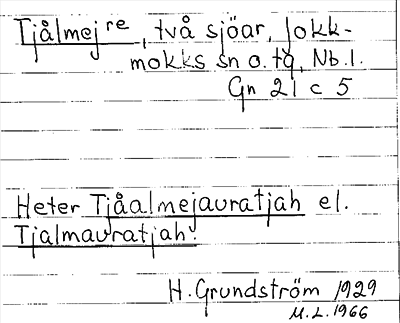 Tjålmejre, två sjöar, Jokk-
mokks sn o. tg, Nb. l.
Gn 21 c 5
Heter Tjåalmejauratjah el.
Tjalmauratjah.
H. Grundström 1929
M. L. 1966